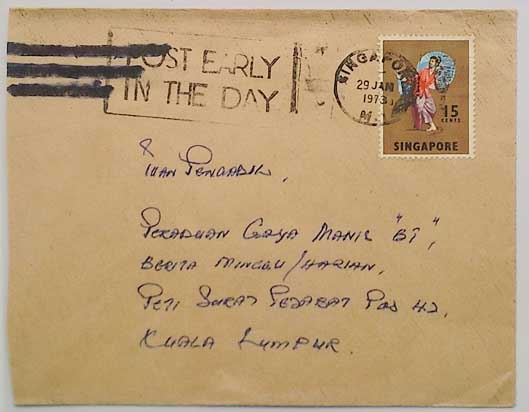 POST EARLY
IN THE DAY
SINGAPORE
29 JAN
1973
15
CENTS
SINGAPORE
Tuan Pengadil,
PERADUAN GAYA MANIS "BT",
BERITA MINGGU/HARIAN,
PETI SURAT PEJABAT POS 42,
KUALA LUMPUR.